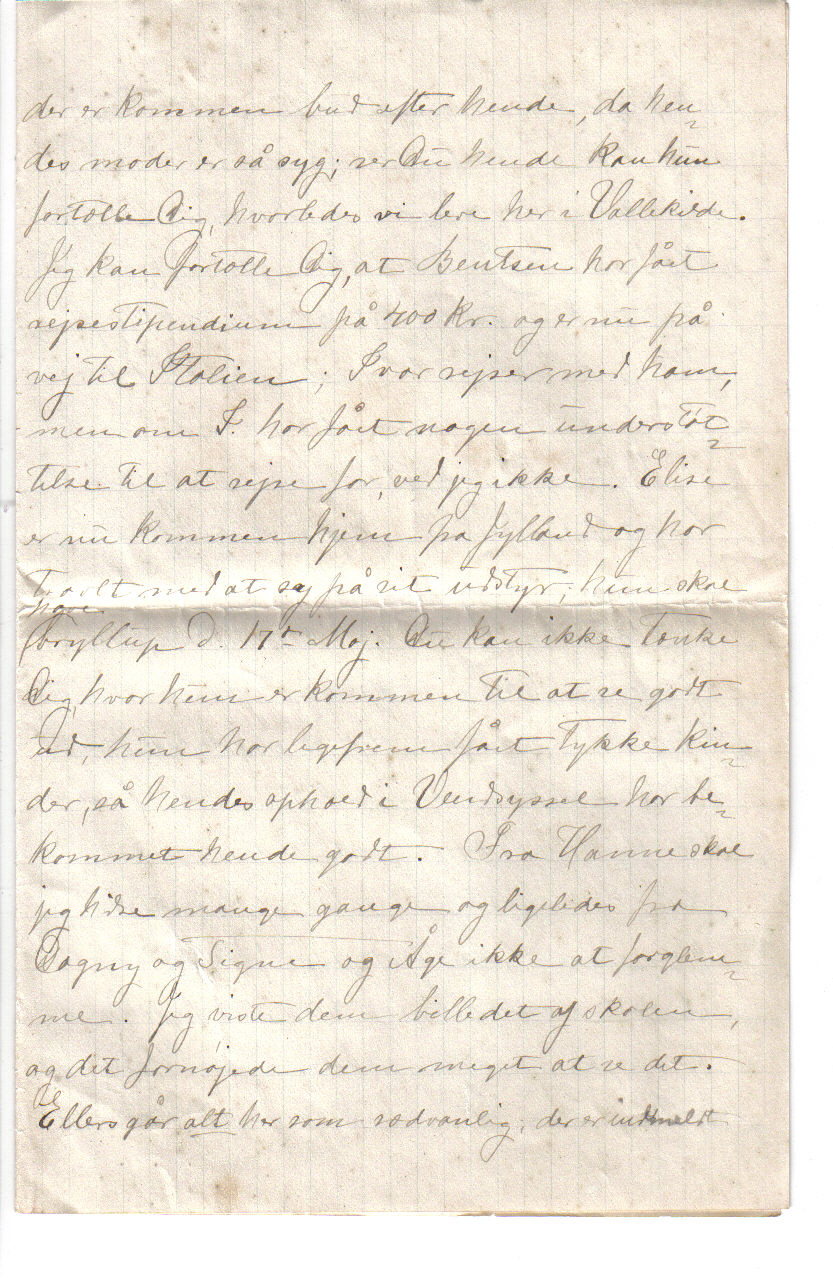 der er kommen bud efter hende, da hen=
des moder er så syg; ser Du hende kan hun
fortælle Dig, hvorledes vi leve her i Vallekilde.
Jeg kan fortælle Dig, at Bentsen har fået
rejsestipendium på 400 Kr. og er nu på
vej til Italien; Ivar rejser med ham,
men om I. har fået nogen understøt=
telse til at rejse for, ved jeg ikke. Elise
er nu kommen hjem fra Jylland og har
travlt med at sy på sit udstyr; hun skal
have
bryllup d. 17de Maj. Du kan ikke tænke
Dig, hvor hun er kommen til at se godt
ud, hun har ligefrem fået tykke kin=
der, så hendes ophold i Vendsyssel har be=
kommet hende godt. Fra Hanne skal
jeg hilse mange gange og ligeledes fra
Dagny og Signe og Åge ikke at forglem=
me. Jeg viste dem billedet af skolen,
og det fornøjede dem meget at se det.
Ellers går alt her som sædvanlig, der er indmeldt